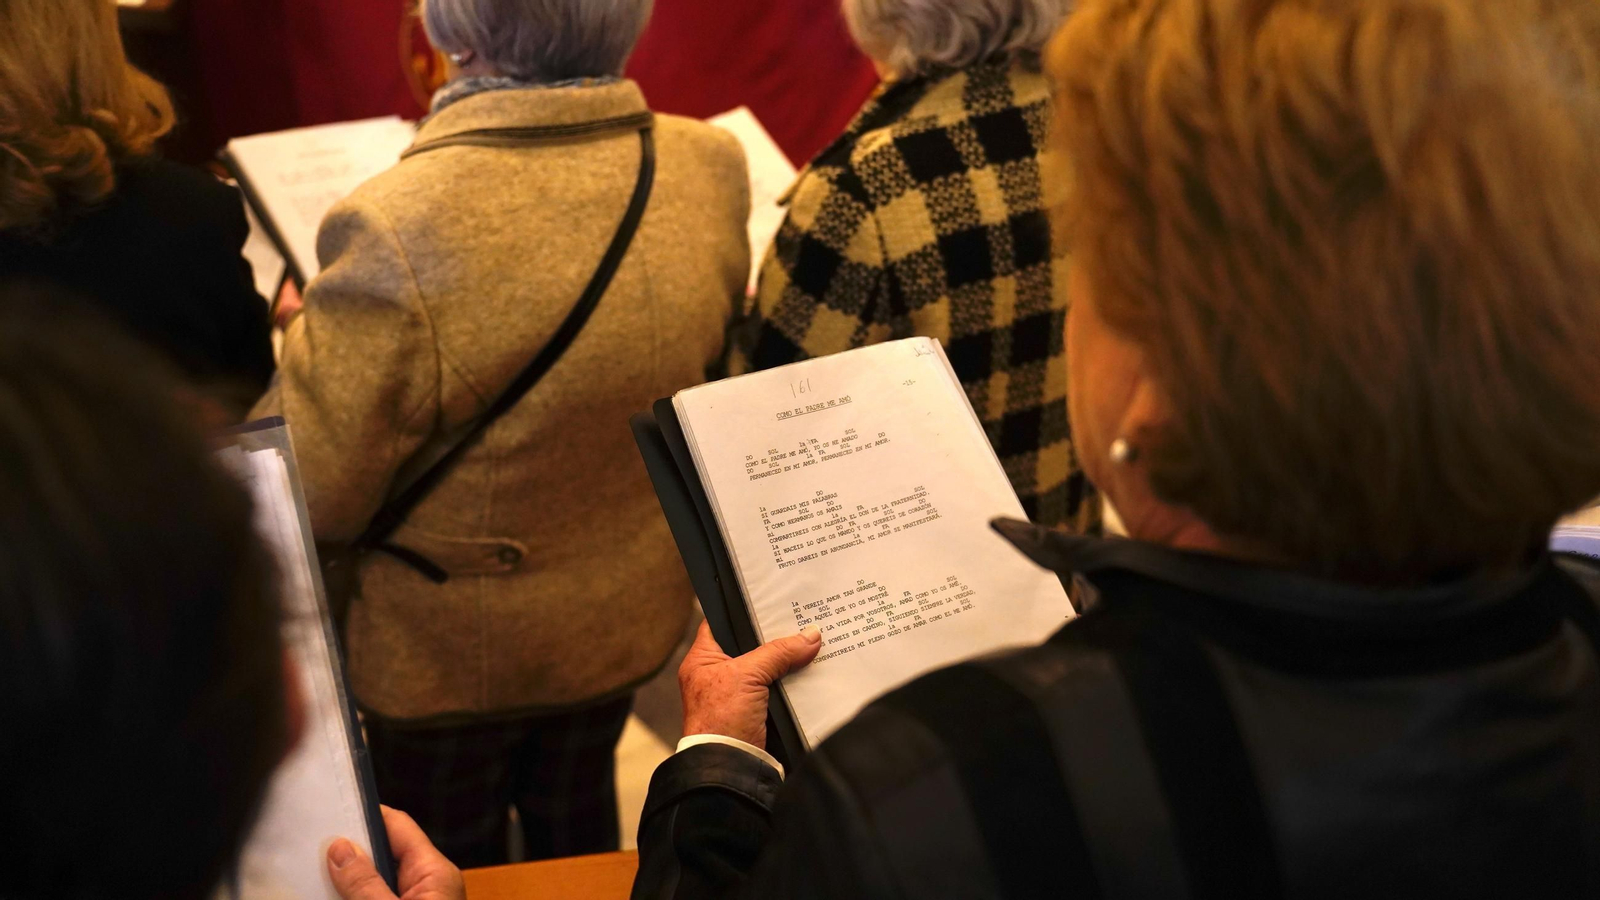 161
-15-
COMO EL PADRE ME AMÓ
DO SOL la FA SOL
COMO EL PADRE ME AMÓ, YO OS HE AMADO DO
DO SOL la FA SOL
PERMANECED EN MI AMOR, PERMANECED EN MI AMOR.
la DO SOL
SI GUARDAIS MIS PALABRAS
FA SOL DO
Y COMO HERMANOS OS AMAIS
mi la FA SOL DO
COMPARTIREIS CON ALEGRÍA EL DON DE LA FRATERNIDAD.
la DO FA SOL
SI HACEIS LO QUE OS MANDO Y OS QUEREIS DE CORAZÓN
mi la FA SOL
FRUTO DAREIS EN ABUNDANCIA, MI AMOR SE MANIFESTARÁ.
la DO SOL
NO VEREIS AMOR TAN GRANDE
FA SOL DO
COMO AQUEL QUE YO OS MOSTRÉ
la FA SOL DO
Y LA VIDA POR VOSOTROS, AMAD COMO YO OS AMÉ.
DO FA SOL
PONEIS EN CAMINO, SIGUIENDO SIEMPRE LA VERDAD,
la FA SOL
COMPARTIREIS MI PLENO GOZO DE AMAR COMO EL ME AMÓ.